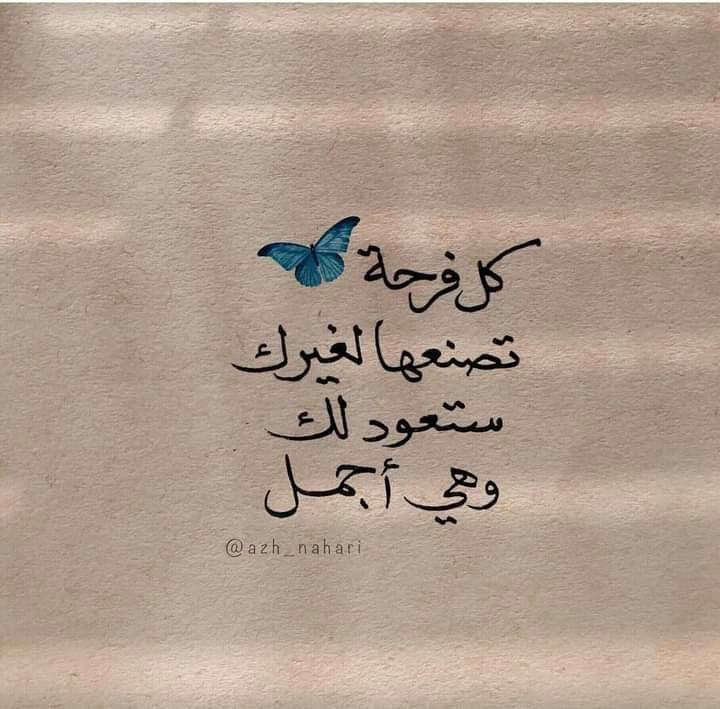 كل فرحة
تصنعها لغيرك
ستعود لك
وهي أجمل
@azh_nahari